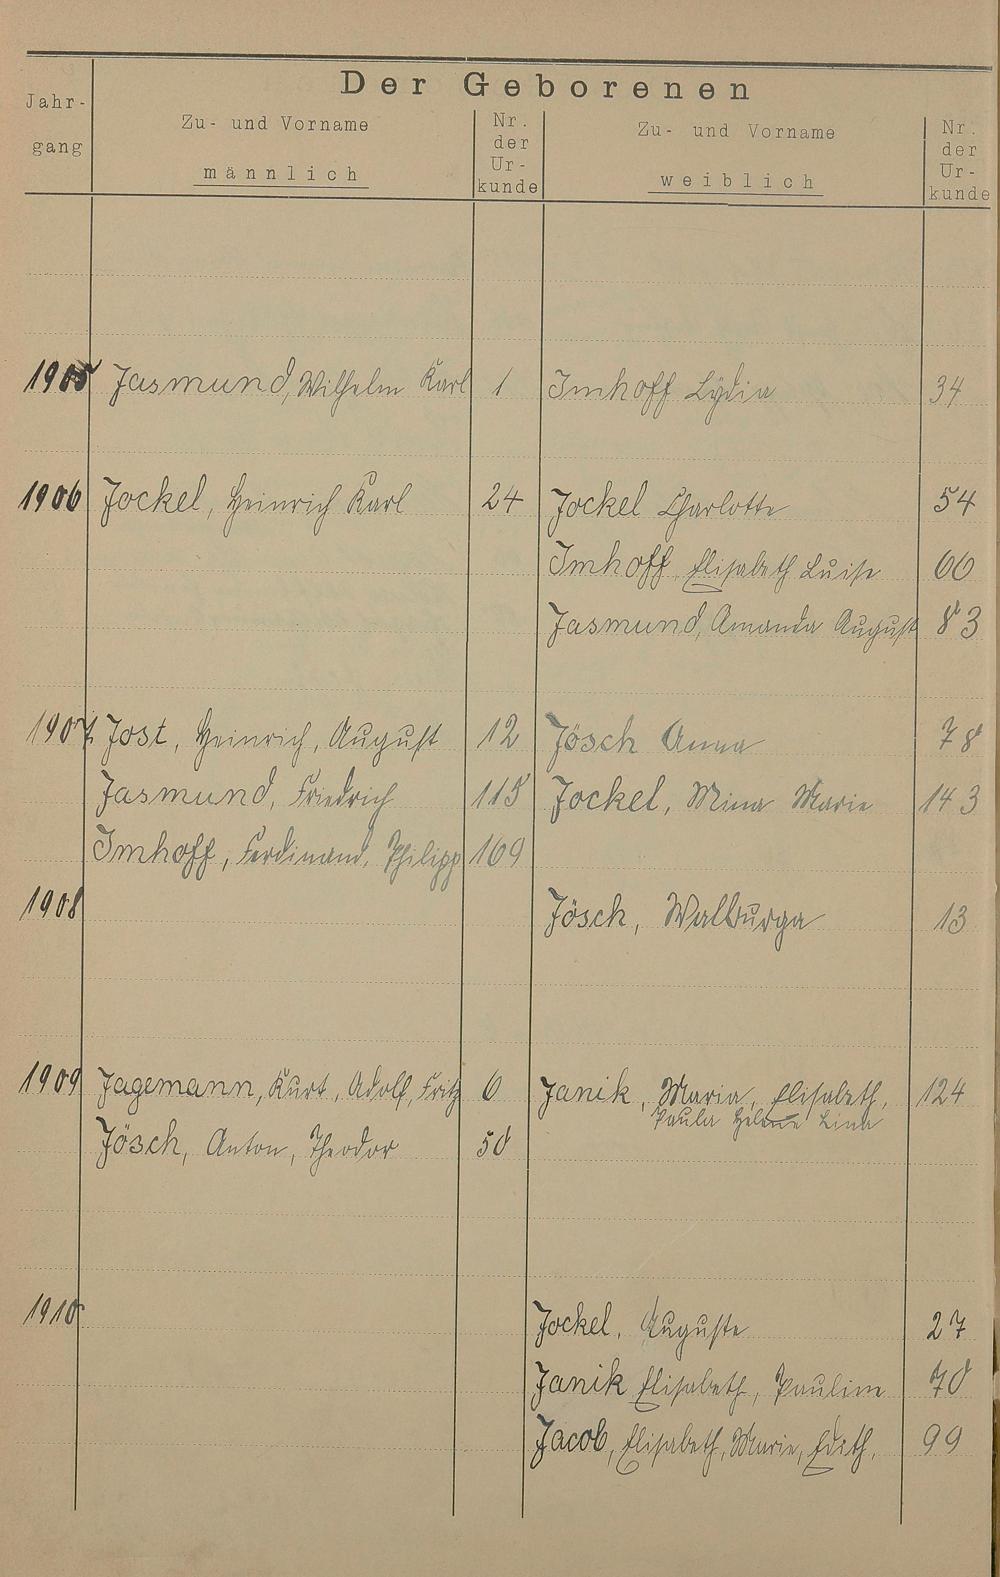 Der Geborenen
Jahr-
gang
Zu- und Vorname
männlich
Nr.
der
Ur-
kunde
Zu- und Vorname
weiblich
Nr.
der
Ur-
kunde
1905 Jasmund, Wilhelm Karl 1 Imhoff Lydia 34
1906 Jockel, Heinrich Karl 24 Jockel Charlotte 54
Imhoff Elisabeth Luise 60
Jasmund, Amanda August 83
1907 Jost, Heinrich, August 12 Jösch Anna 78
Jasmund, Friedrich 115 Jockel, Mina Marie 143
Imhoff, Ferdinand, Philipp 169
1908 Jösch, Walburga 13
1909 Jagemann, Kurt, Adolf, Fritz 6 Janik, Maria, Elisabeth, 124
Paula Helene Lina
Jösch, Anton, Theodor 50
1910 Jockel, Auguste 27
Janik Elisabeth, Pauline 70
Jacob, Elisabeth, Marie, Edith, 99